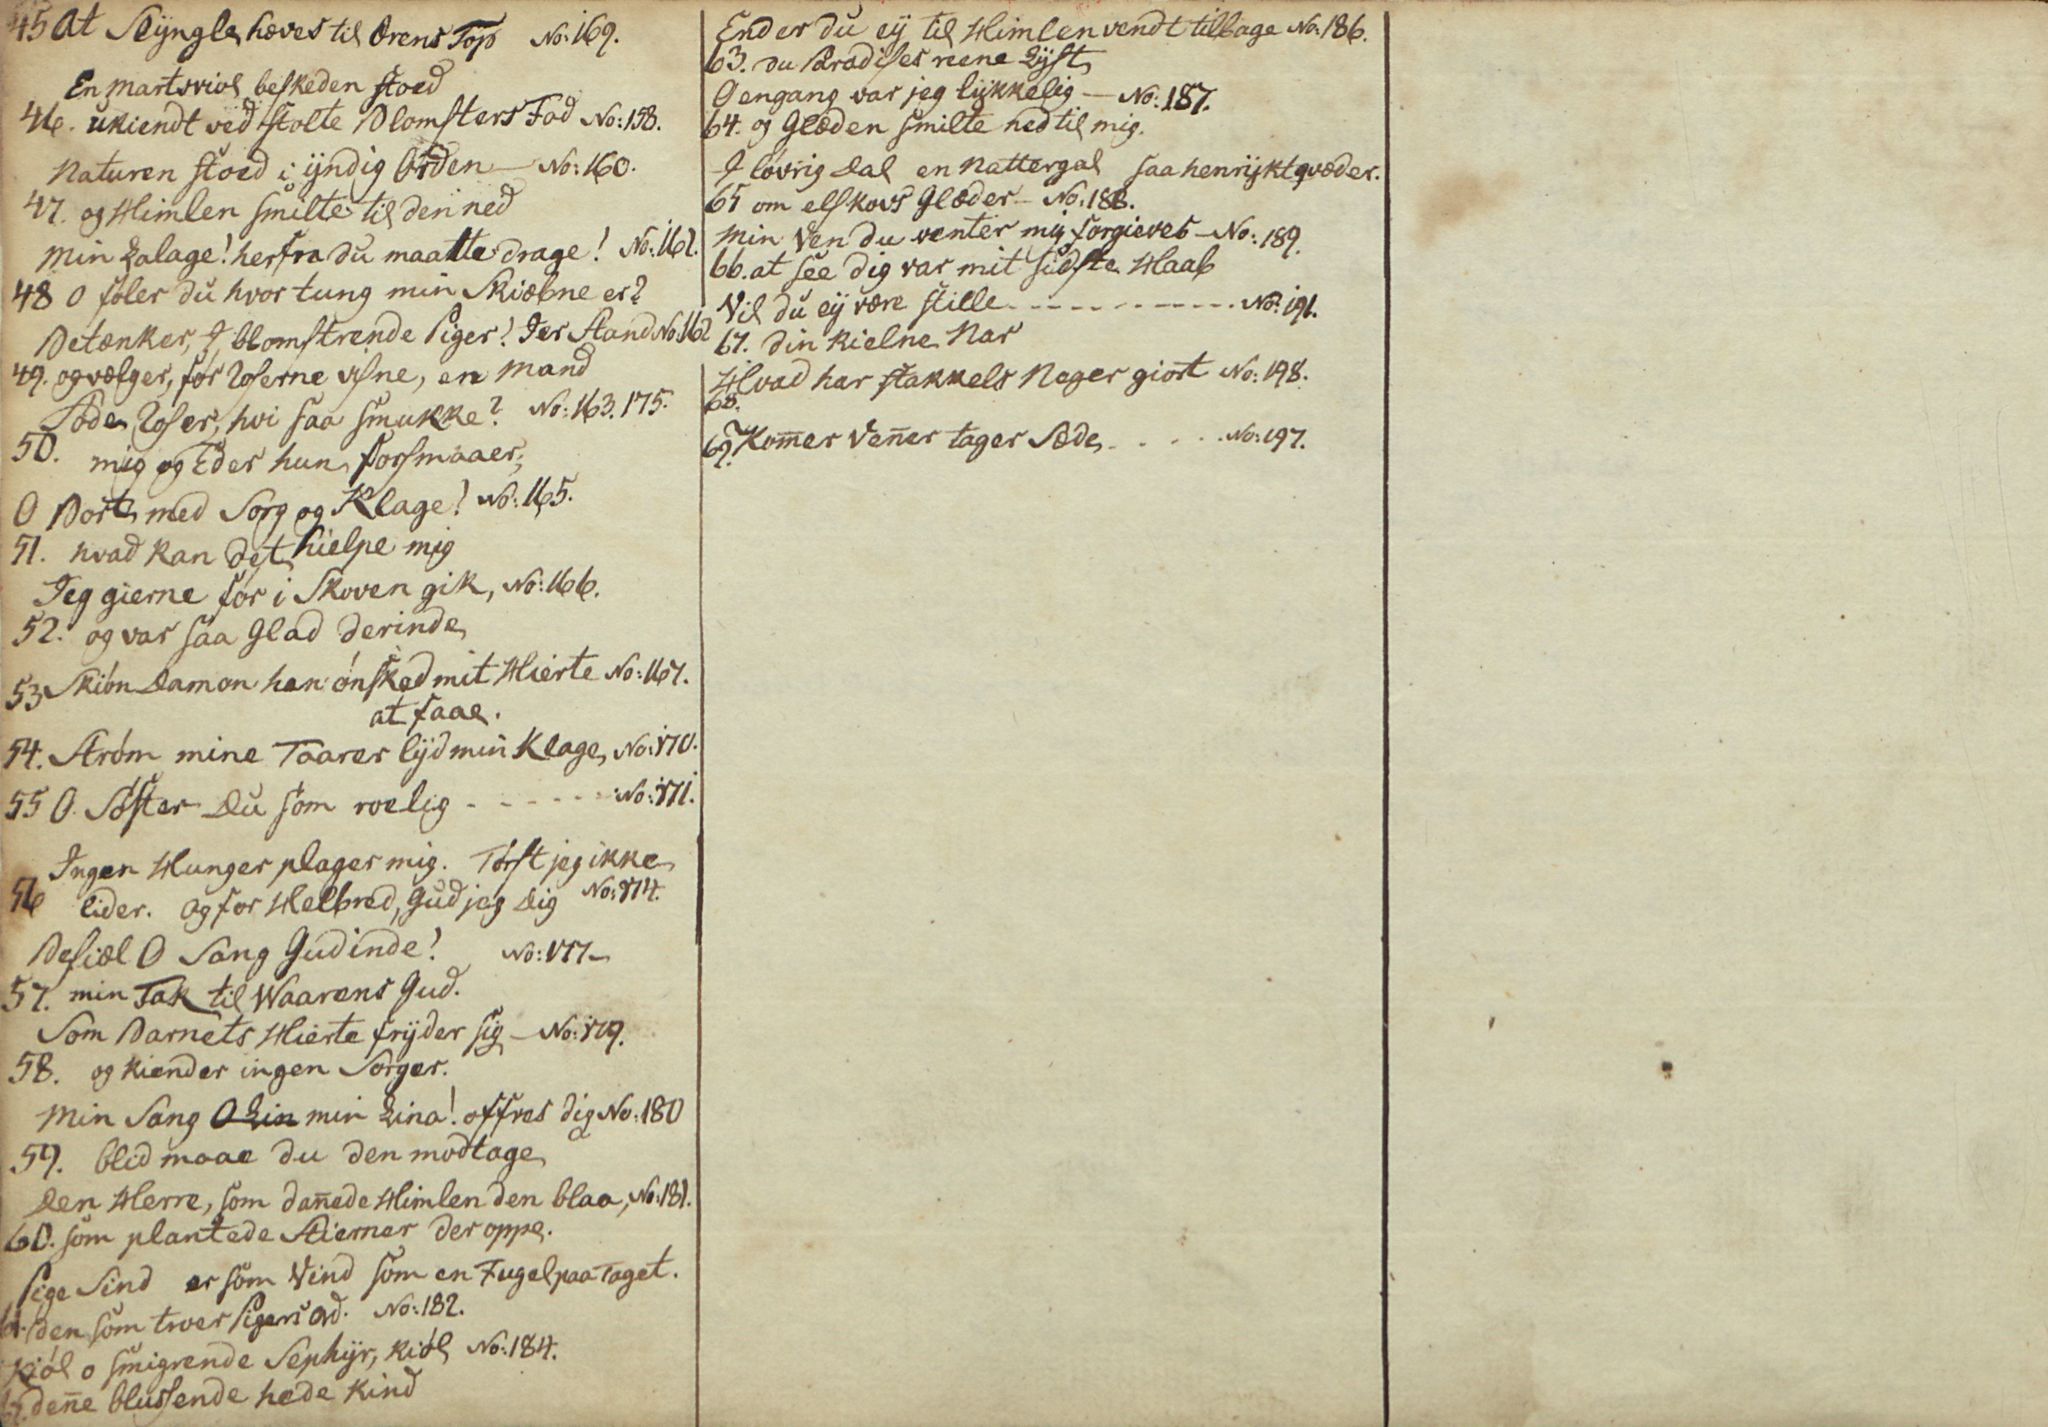 45 At Slyngle hæves til Ærens Top No: 169.
En Martsviol beskeden stoed
46. ukiendt ved stolte Blomsters Fod No: 158.
Naturen stoed i yndig Orden — No: 160.
47. og Himlen smilte til den ned
Min Lalage! herfra du maatte drage! No: 161.
48 O føler du hvor tung min Skiæbne er?
Betænker, I blomstrende Piger! Jer Stand No: 162
49. og vælger, før Roserne visne, en Mand
Søde Roser, hvi saa smukke? No: 163. 175.
50. mig og Eder hun forsmaaer;
O Bort med Sorg og Klage! No: 165.
51. hvad kan det hielpe mig
Jeg gierne før i Skoven gik, No: 166.
52. og var saa Glad derinde
53 Skiøn Damon han ønsked mit Hierte No: 167.
at faae.
54. Strøm mine Taarer lyd min Klage No: 170.
55 O Søster Du som roelig - - - - - - No: 171.
Ingen Hunger plager mig. Tørst jeg ikke
56 lider. og for Helbred, Gud jeg Dig No: 174.
Besiæl O Sang Gudinde! No: 177 —
57. min Tak til Waarens Gud.
Som Barnets Hierte fryder sig — No: 179.
58. og kiender ingen Sorger.
Min Sang O Lin min Lina! offres dig No: 180
59. blid maae du den modtage
Den Herre, som dan̄ede Himlen den blaa, No: 181.
60. som plantede Stierner der oppe.
Pige Sind er som Vind som en Fugel paa Taget.
61. den som troer Pigers Ord. No: 182.
Kiøl o smigrende Sephyr, kiøl No: 184.
62. den̄e blussende hede Kind
Ender du ey til Himlen vendt tilbage No: 186.
63. du Paradises reene Lyst
O engang var jeg lykkelig — No: 187.
64. og Glæden smilte ned til mig.
I løvrig Dal en Nattergal saa henrykt qvæder.
65 om elskovs Glæder — No: 188.
Min Ven du venter mig forgieves — No: 189.
66. at see dig var mit sidste Haab
Vil du ey være stille - - - - - - - - - - No: 191.
67. din kielne Nar
Hvad har stakkels Neger giort No: 198.
68.
69. Kom̄er Ven̄er tager Sæde - - - - - No: 197.